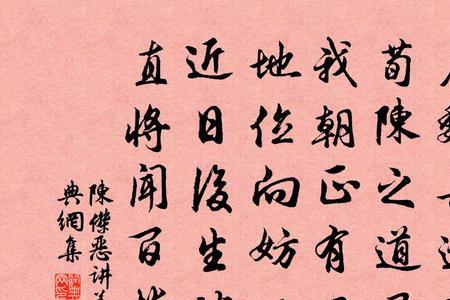 荀陳之道
我朝正有
地位向妨
近日後生
直將聞百
陳傑惡講
典網集